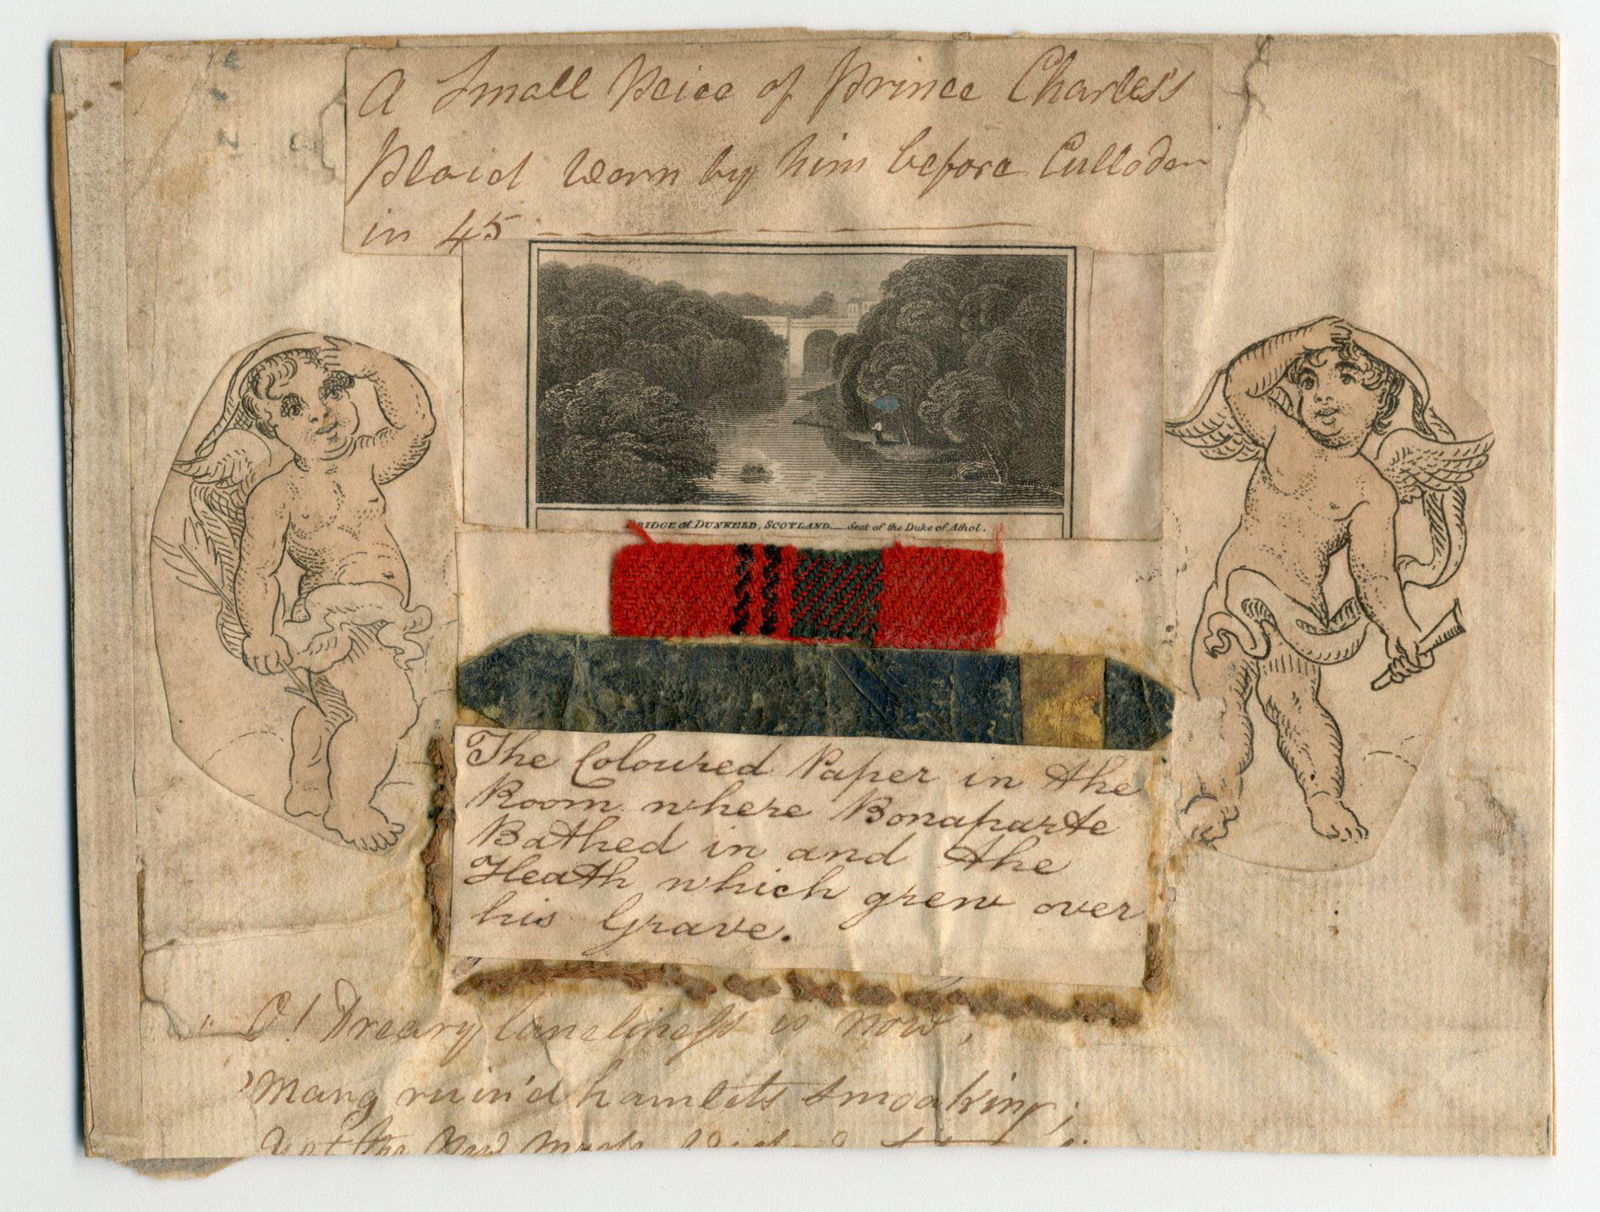 A Small Peice of Prince Charles's
Plaid Worn by him before Culloden
in 45
BRIDGE at DUNKELD, SCOTLAND. Seat of the Duke of Athol.
The Coloured Paper in the
Room where Bonaparte
Bathed in and the
Heath which grew over
his Grave.
"O! Dreary laneliness is now,
'Mang ruin'd hamlets smoaking;
Yet the New